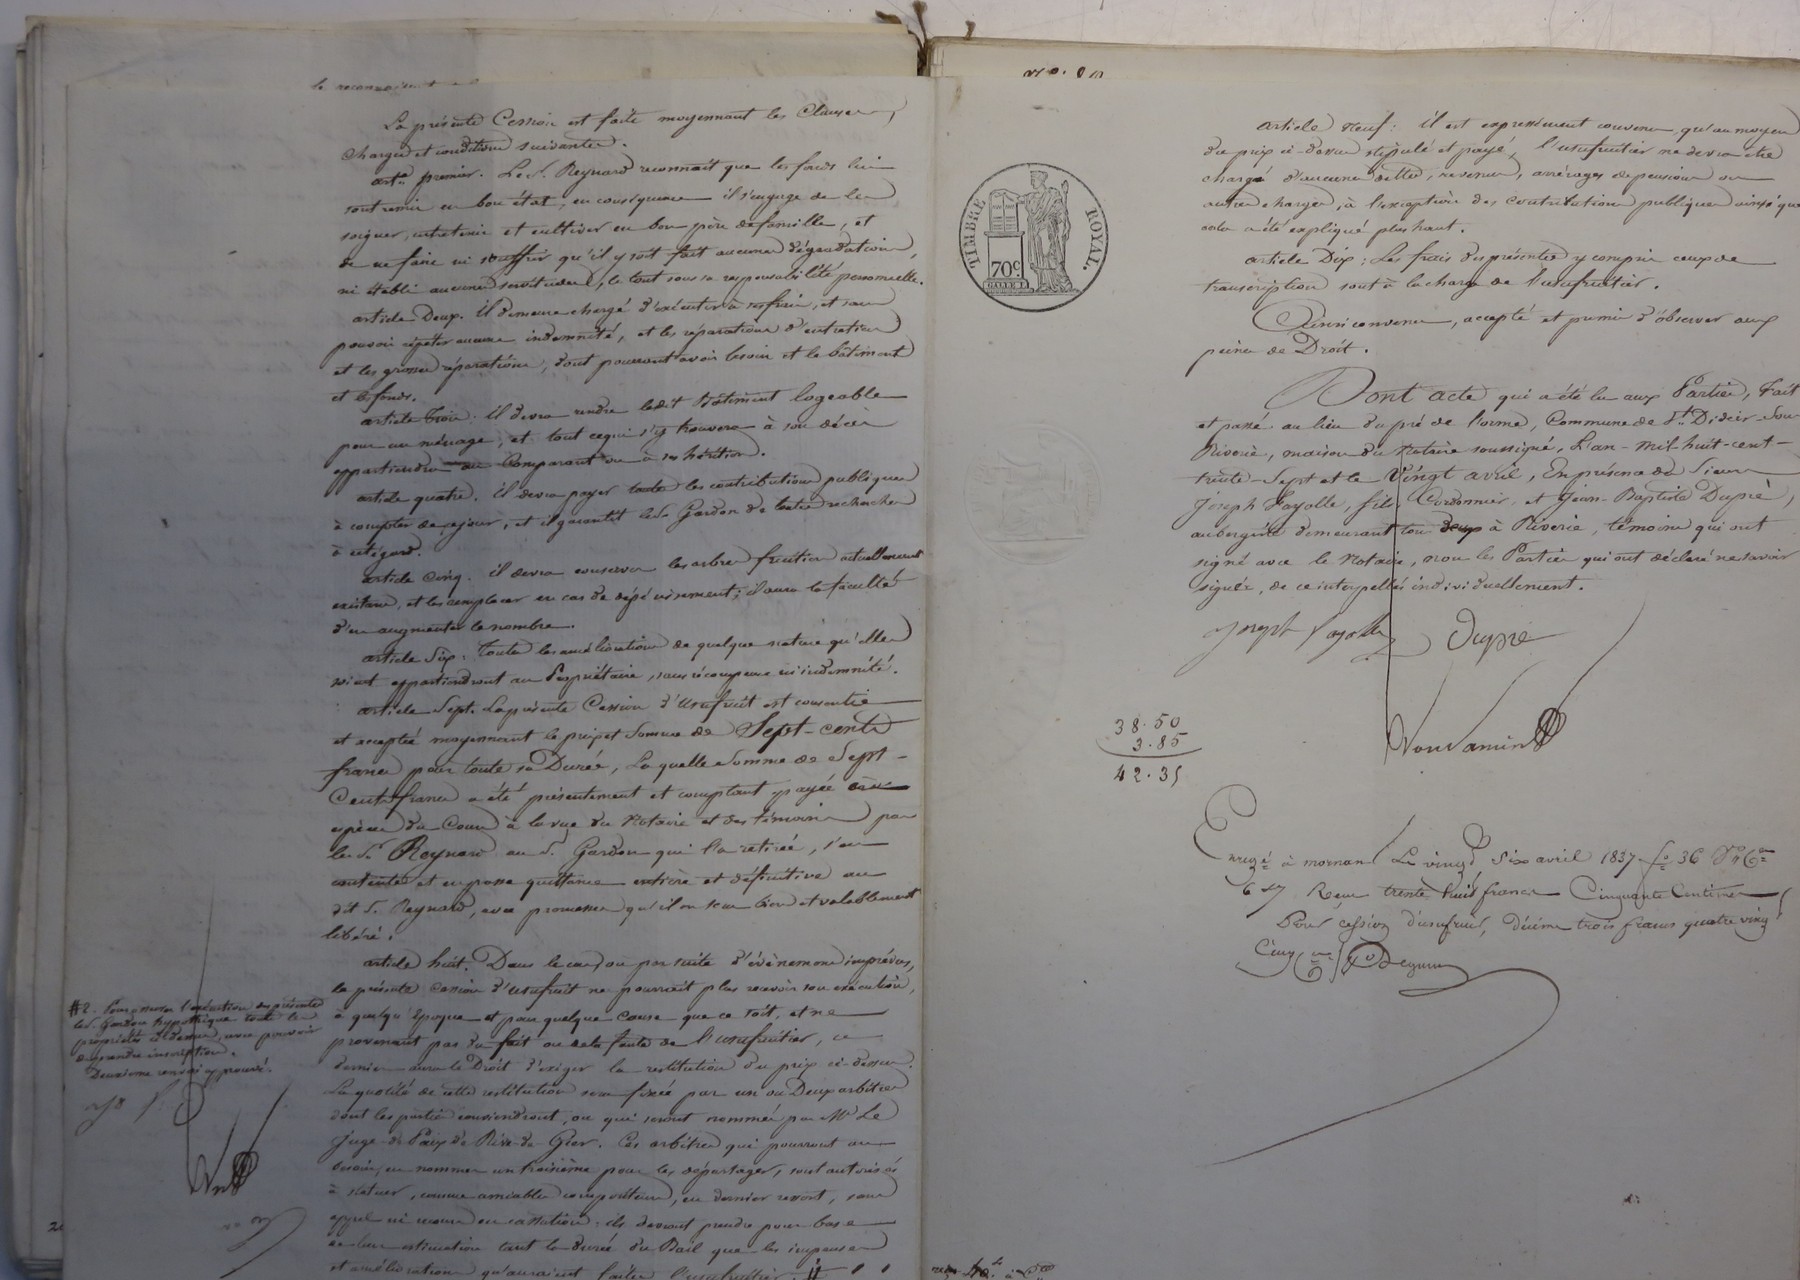 le reconnaissent
La présente Cession est faite moyennant les Clauses,
charges et conditions suivantes.
arte. premier. Le S. Reynard reconnait que les fonds lui
sont remis en bon état, en conséquence il s'engage de les
soigner, entretenir et cultiver en bon père de famille, et
de ne faire ni souffrir qu'il y soit fait aucune dégradation,
ni établi aucunes servitudes, le tout sous sa responsabilité personnelle.
article Deux. Il demeure chargé d'exécuter à ses frais, et sans
pouvoir répéter aucune indemnité, et les réparations d'entretien
et les grosses réparations, dont pourront avoir besoin et le bâtiment
et les fonds.
article Trois. Il devra rendre ledit Bâtiment logeable
pour un ménage, et tout ce qui s'y trouvera à son décès
appartiendra au Comparant ou à ses héritiers.
article quatre. il devra payer toutes les contributions publiques
à compter de ce jour, et il garantit le S. Gardon de toutes recherches
à cet égard.
article Cinq. il devra conserver les arbres fruitiers actuellement
existans, et les remplacer en cas de dépérissement; il aura la faculté
d'en augmenter le nombre.
article Six. Toutes les améliorations de quelque nature qu'elles
soient appartiendront au Propriétaire, sans récompense ni indemnité.
article Sept. La présente Cession d'Usufruit est consentie
et acceptée moyennant le prix et Somme de Sept-cents
francs pour toute sa Durée, Laquelle Somme de Sept-
Cents francs a été présentement et comptant payée en
espèces du Cours à la vue du Notaire et des témoins par
le S. Reynard au S. Gardon qui l'a retirée, s'en
contente et en passe quittance entière et définitive au
dit S. Reynard, avec promesse qu'il en sera bien et valablement
libéré.
article huit. Dans le cas, ou par suite d'évènemens imprévus,
la présente Cession d'Usufruit ne pourrait plus recevoir son exécution,
à quelqu'époque et pour quelque cause que ce soit, et ne
provenant pas du fait ou de la faute de l'usufruitier, ce
dernier aura le Droit d'exiger la restitution du prix ci-dessus.
La quotité de cette restitution sera fixée par un ou Deux arbitres
dont les parties conviendront, ou qui seront nommés par Mr Le
Juge de Paix de Rive-de-Gier. Ces arbitres qui pourront au
besoin, en nommer un troisième pour les départager, sont autorisés
à statuer, comme amiables compositeurs, en dernier ressort, sans
appel ni recours en cassation; ils devront prendre pour base
de leur estimation tant la durée du Bail que les impenses
et améliorations qu'auraient faites l'usufruitier. #
#2. Pour assurer l'exécution des présentes
le S. Gardon hypothèque toutes les
propriétés ci-dessus, avec pouvoir
de prendre inscription.
Deuxième renvoi approuvé.
TIMBRE ROYAL.
70c.
article neuf: il est expressément convenu, qu'au moyen
du prix ci-dessus stipulé et payé, l'usufruitier ne devra être
chargé d'aucunes dettes, revenus, arrérages de pensions ou
autres charges, à l'exception des Contributions publiques ainsi que
cela a été expliqué plus haut.
article Dix: Les frais des présentes y compris ceux de
transcription sont à la charge de l'usufruitier.
Ainsi convenu, accepté et promis d'observer aux
peines de Droit.
Dont acte qui a été lu aux Parties, Fait
et passé au lieu du pré de l'orme, Commune de St. Didier-Sous-
Riverie, maison du Notaire soussigné, L'an-mil-huit-cent-
trente-Sept et le Vingt avril, En présence de Sieurs
Joseph Fayolle, fils, Cordonnier, et Jean-Baptiste Dupré,
aubergiste demeurant tous deux à Riverie, témoins qui ont
signé avec le Notaire, non les Parties qui ont déclaré ne savoir
signer, de ce interpellés individuellement.
Joseph Fayolle Dupré
38.50
3.85
42.35
Enregé à mornant Le vingt Six avril 1837 fo 36
6 & 7 Reçu trente huit francs Cinquante Centimes
Pour cession d'usufruit, décime trois francs quatre vingt
Cinq